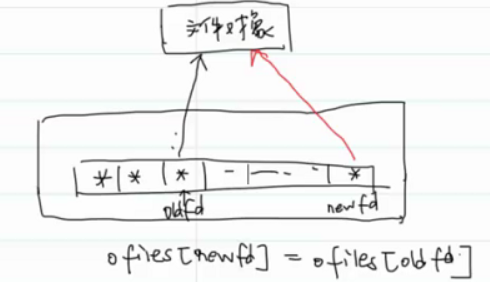 文件对象
* * * - - - - *
oldfd newfd
ofiles[newfd] = ofiles[oldfd]